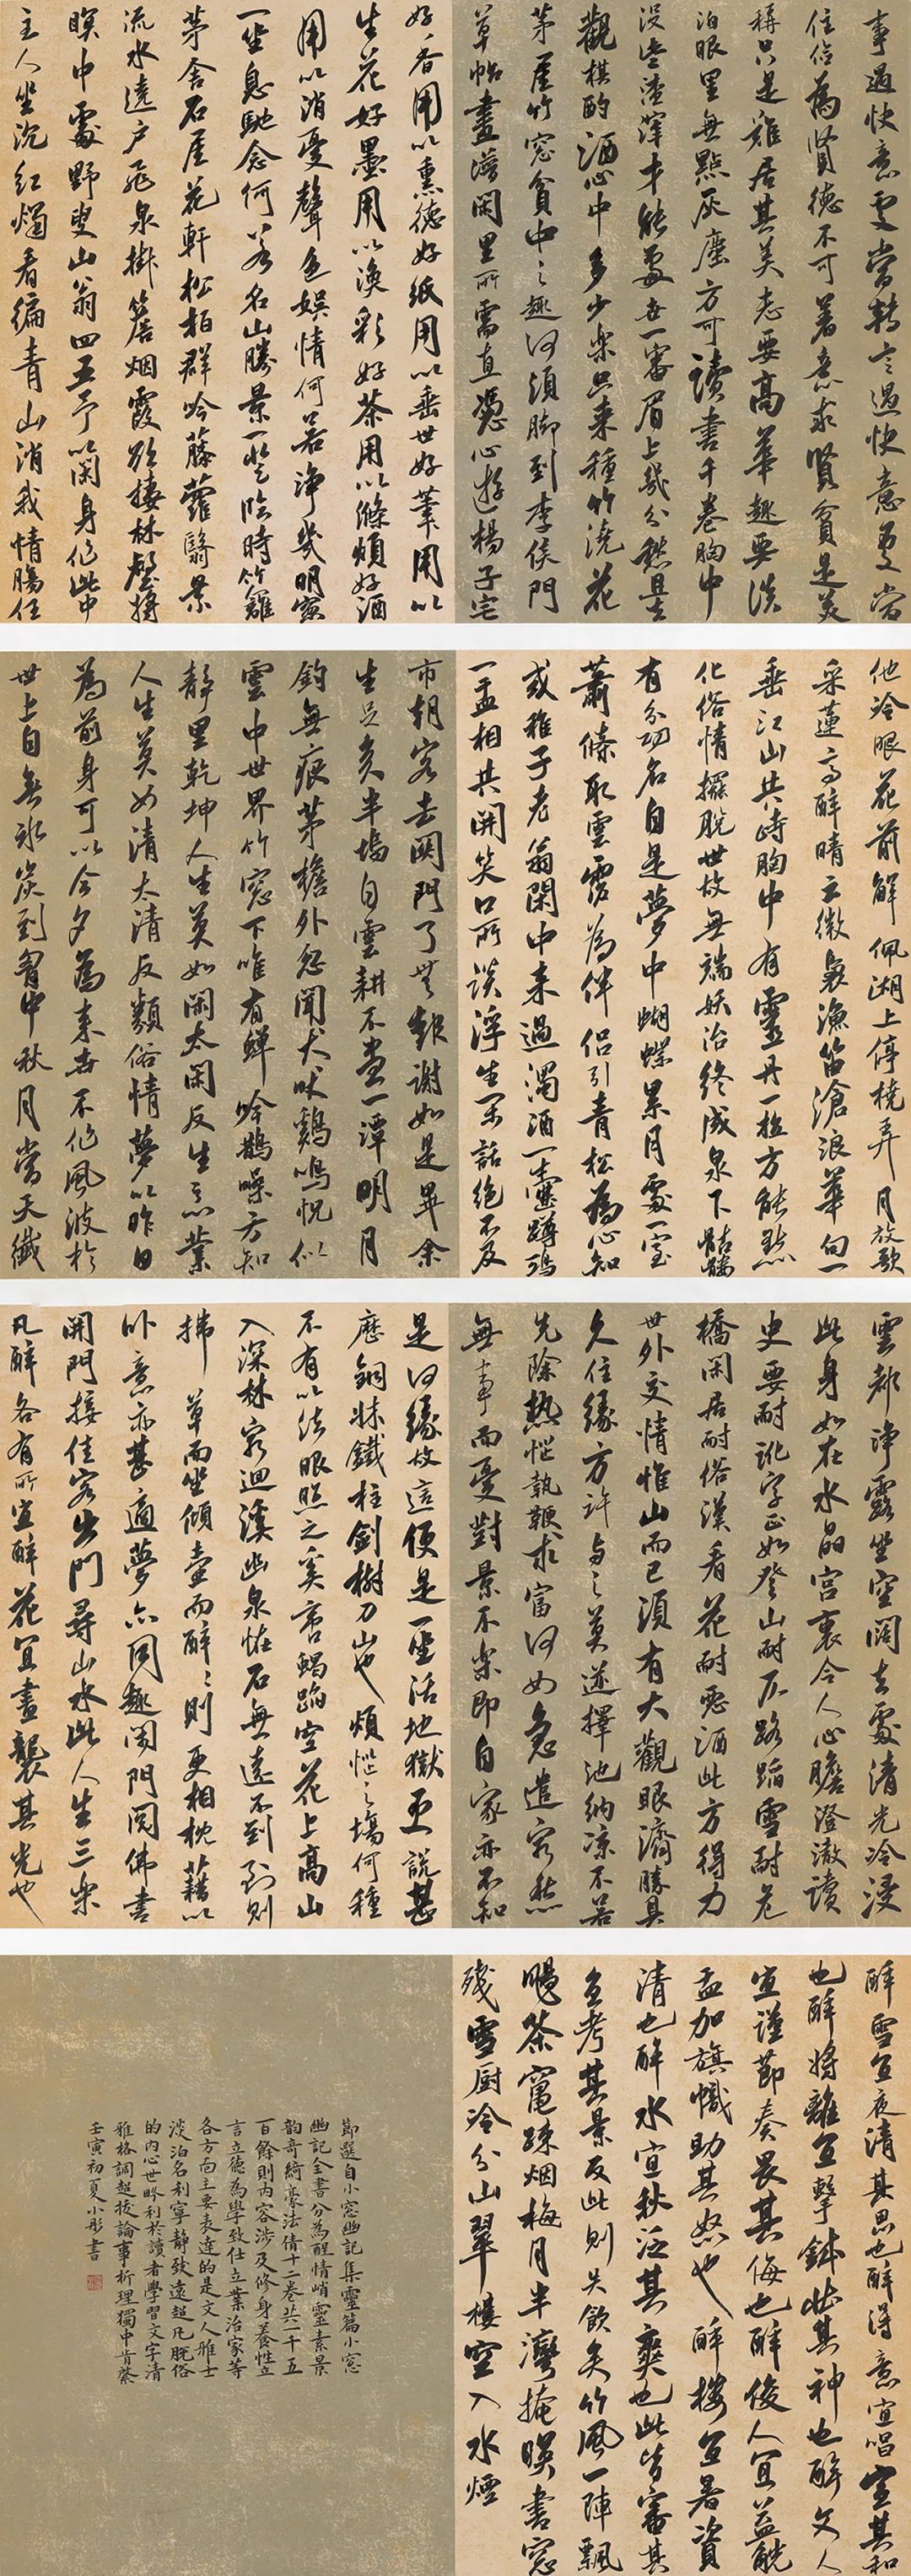 事過快意處當轉言過快意處當
住信為賢德不可着意求賢貧是美
稱只是難居其美志要高華趣要淡
泊眼里無點灰塵方可讀書千卷胸中
没些渣滓才能處世一番眉上幾分愁且去
觀棋酌酒心中多少樂只来種竹澆花
茅屋竹窓貧中之趣何須脚到李侯門
草帖畫譜閑里所需直憑心遊楊子宅
好香用以熏德好紙用以垂世好筆用以
生花好墨用以渙彩好茶用以滌煩好酒
用以消憂聲色娛情何若淨幾明窓
一坐息馳念何若名山勝景一登臨時竹籬
茅舍石屋花軒松柏群吟藤蘿翳景
流水遶户飛泉掛簷烟霞欲棲林壑將
暝中處野叟山翁四五予以閑身作此中
主人坐沉紅燭看遍青山消我情腸任
他冷眼花前解佩湖上停橈弄月放歌
采蓮高醉晴云微裊漁笛滄浪華句一
垂江山共峙胸中有靈丹一粒方能點
化俗情擺脱世故無端妖冶終成泉下骷髏
有分功名自是夢中蝴蝶累月處一室
蕭條取雲霞為伴侣引青松為心知
或稚子老翁閑中来過濁酒一壺蹲鴟
一盂相共開笑口所談浮生閑話絕不及
市朝客去闗門了無報謝如是畢余
生足矣半塢白雲耕不盡一潭明月
釣無痕茅檐外忽聞犬吠鷄鳴恍似
雲中世界竹窓下唯有蟬吟鵲噪方知
静里乾坤人生莫如閑太閑反生惡業
人生莫如清太清反類俗情夢以昨日
為前身可以今夕為來世不作風波於
世上自無冰炭到胷中秋月當天纖
雲都淨露坐空闊去處清光冷浸
此身如在水晶宮裏令人心膽澄澈讀
史要耐訛字正如登山耐仄路踏雪耐危
橋閑居耐俗漢看花耐惡酒此方得力
世外交情惟山而已須有大觀眼濟勝具
久住緣方許与之莫逆擇池納凉不若
先除熱惱執鞭求富何如急遣窮愁
無事而憂對景不樂即自家亦不知
是何緣故這便是一座活地獄更說甚
麽銅牀鐵柱劍樹刀山也煩惱之塲何種
不有以法眼照之奚啻蝎蹈空花上高山
入深林窮迴溪幽泉怪石無遠不到到則
拂草而坐傾壺而醉々則更相枕藉以
卧意亦甚適夢亦同趣閉門閱佛書
開門接佳客出門尋山水此人生三樂
凡醉各有所宜醉花宜晝襲其光也
醉雪宜夜清其思也醉得意宜唱宣其和
也醉將離宜擊鉢壯其神也醉文人
宜謹節奏畏其侮也醉俊人宜益觥
盂加旗幟助其怒也醉樓宜暑資
清也醉水宜秋泛其爽也此皆審其
宜考其景反此則失飲矣竹風一陣飄
颺茶竈踈烟梅月半灣掩暎書窓
殘雪厨冷分山翠樓空入水煙
節選自小窓幽記集靈篇小窓
幽記全書分為醒情峭靈素景
韵奇綺豪法倩十二卷共一千五
百餘則内容涉及修身養性立
言立德為學致仕立業治家等
各方面主要表達的是文人雅士
淡泊名利寧静致遠超凡脱俗
的内心世界利於讀者學習文字清
雅格調超拔論事析理獨中肯綮
壬寅初夏小彤書